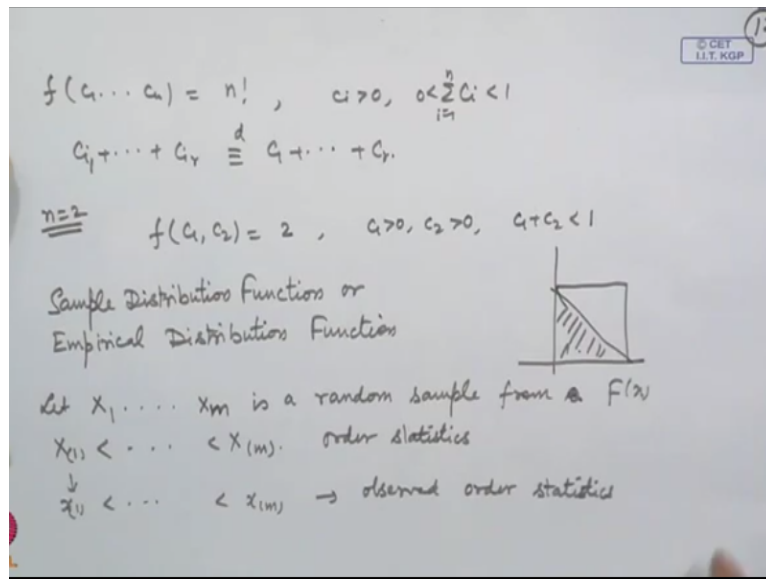 12
© CET
I.I.T. KGP
f(c₁ ... cₙ) = n! , ci >0, 0< Σⁿᵢ₌₁ Ci < 1
Ci₁ + ... + Cir ≡ᵈ C₁ + ... + Cr.
n=2
f(c₁, c₂) = 2 , c₁>0, c₂>0, c₁+c₂ <1
Sample Distribution Function or
Empirical Distribution Function
Let X₁ .... Xm is a random sample from a F(x)
X(1) < ... < X(m). order statistics
↓
x(1) < ... < x(m) → observed order statistics